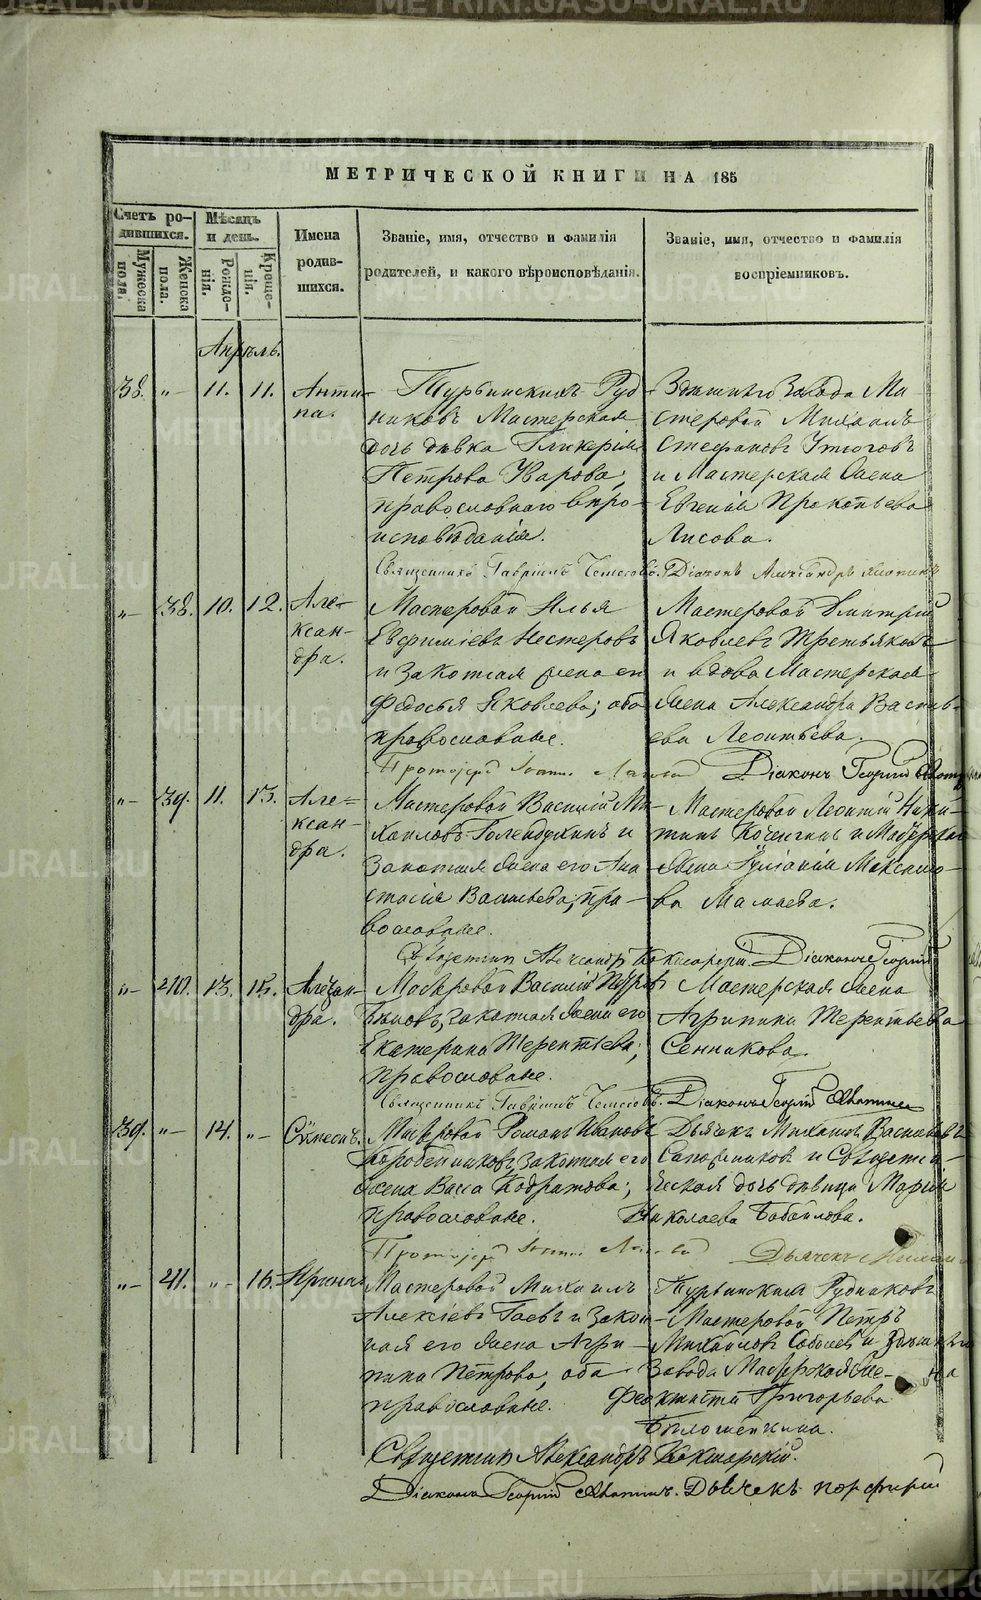 METRIKI.GASO-URAL.RU
МЕТРИЧЕСКОЙ КНИГИ НА 185
Счетъ родившихся.
Мужеска пола.
Женска пола.
Мѣсяцъ и день.
Рожденія.
Крещенія.
Имена родившихся.
Званіе, имя, отчество и фамилія
родителей, и какого вѣроисповѣданія.
Званіе, имя, отчество и фамилія
воспріемниковъ.
Апрѣль.
38. „ 11. 11. Антипа.
Турьинскихъ Руд-
никовъ Мастерская
дочь дѣвка Гликерія
Петрова
православнаго вѣро-
исповѣданія.
Здѣшняго Завода Ма-
стеровой Михаилъ
Стефановъ Утюговъ
и Мастерская жена
Евгенія Прокопьева
Лисова.
Священникъ Гавріилъ
Діаконъ Александръ
„ 38. 10. 12. Александра.
Мастеровой Илья
Евфиміевъ Нестеровъ
и законная жена его
Федосья Яковлева; оба
православные.
Мастеровой Дмитрій
Яковлевъ Третьяковъ
и вдова Мастерская
жена Александра Василь-
ева Леонтьева.
Протоіерей
Діаконъ Георгій
„ 39. 11. 13. Александра.
Мастеровой Василій Ми-
хаиловъ Голендухинъ и
законная жена его Ана-
стасія Васильева; пра-
вославные.
Мастеровой Леонтій Ники-
тинъ и Мастерская
жена Іуліанія Максимо-
ва Мамаева.
Священникъ Александръ
Діаконъ Георгій
„ 40. 13. 15. Александра.
Мастеровой Василій Петровъ
законная жена его
Екатерина Терентьева;
православные.
Мастерская жена
Агрипина Терентьева
Сенникова.
Священникъ Гавріилъ
Діаконъ Георгій
39. „ 14. „ Сѵмеонъ.
Мастеровой Романъ Ивановъ
Коробейниковъ, законная его
жена Васса Кодратова;
православные.
Дьячекъ Михаилъ Васильевъ
Сапожниковъ и Священни-
ческая дочь дѣвица Марія
Николаева Бабайлова.
Протоіерей
Дьячекъ
„ 41. „ 16. Ирина.
Мастеровой Михаилъ
Алексіевъ Гаевъ и закон-
ная его жена Агри-
пина Петрова, оба
православные.
Турьинскихъ Рудниковъ
Мастеровой Петръ
Михайловъ Соболевъ и здѣшняго
Завода Мастерская жена
Феоктиста Григорьева
Бѣлошейкина.
Священникъ Александръ
Діаконъ Георгій
Дьячекъ Порфирій